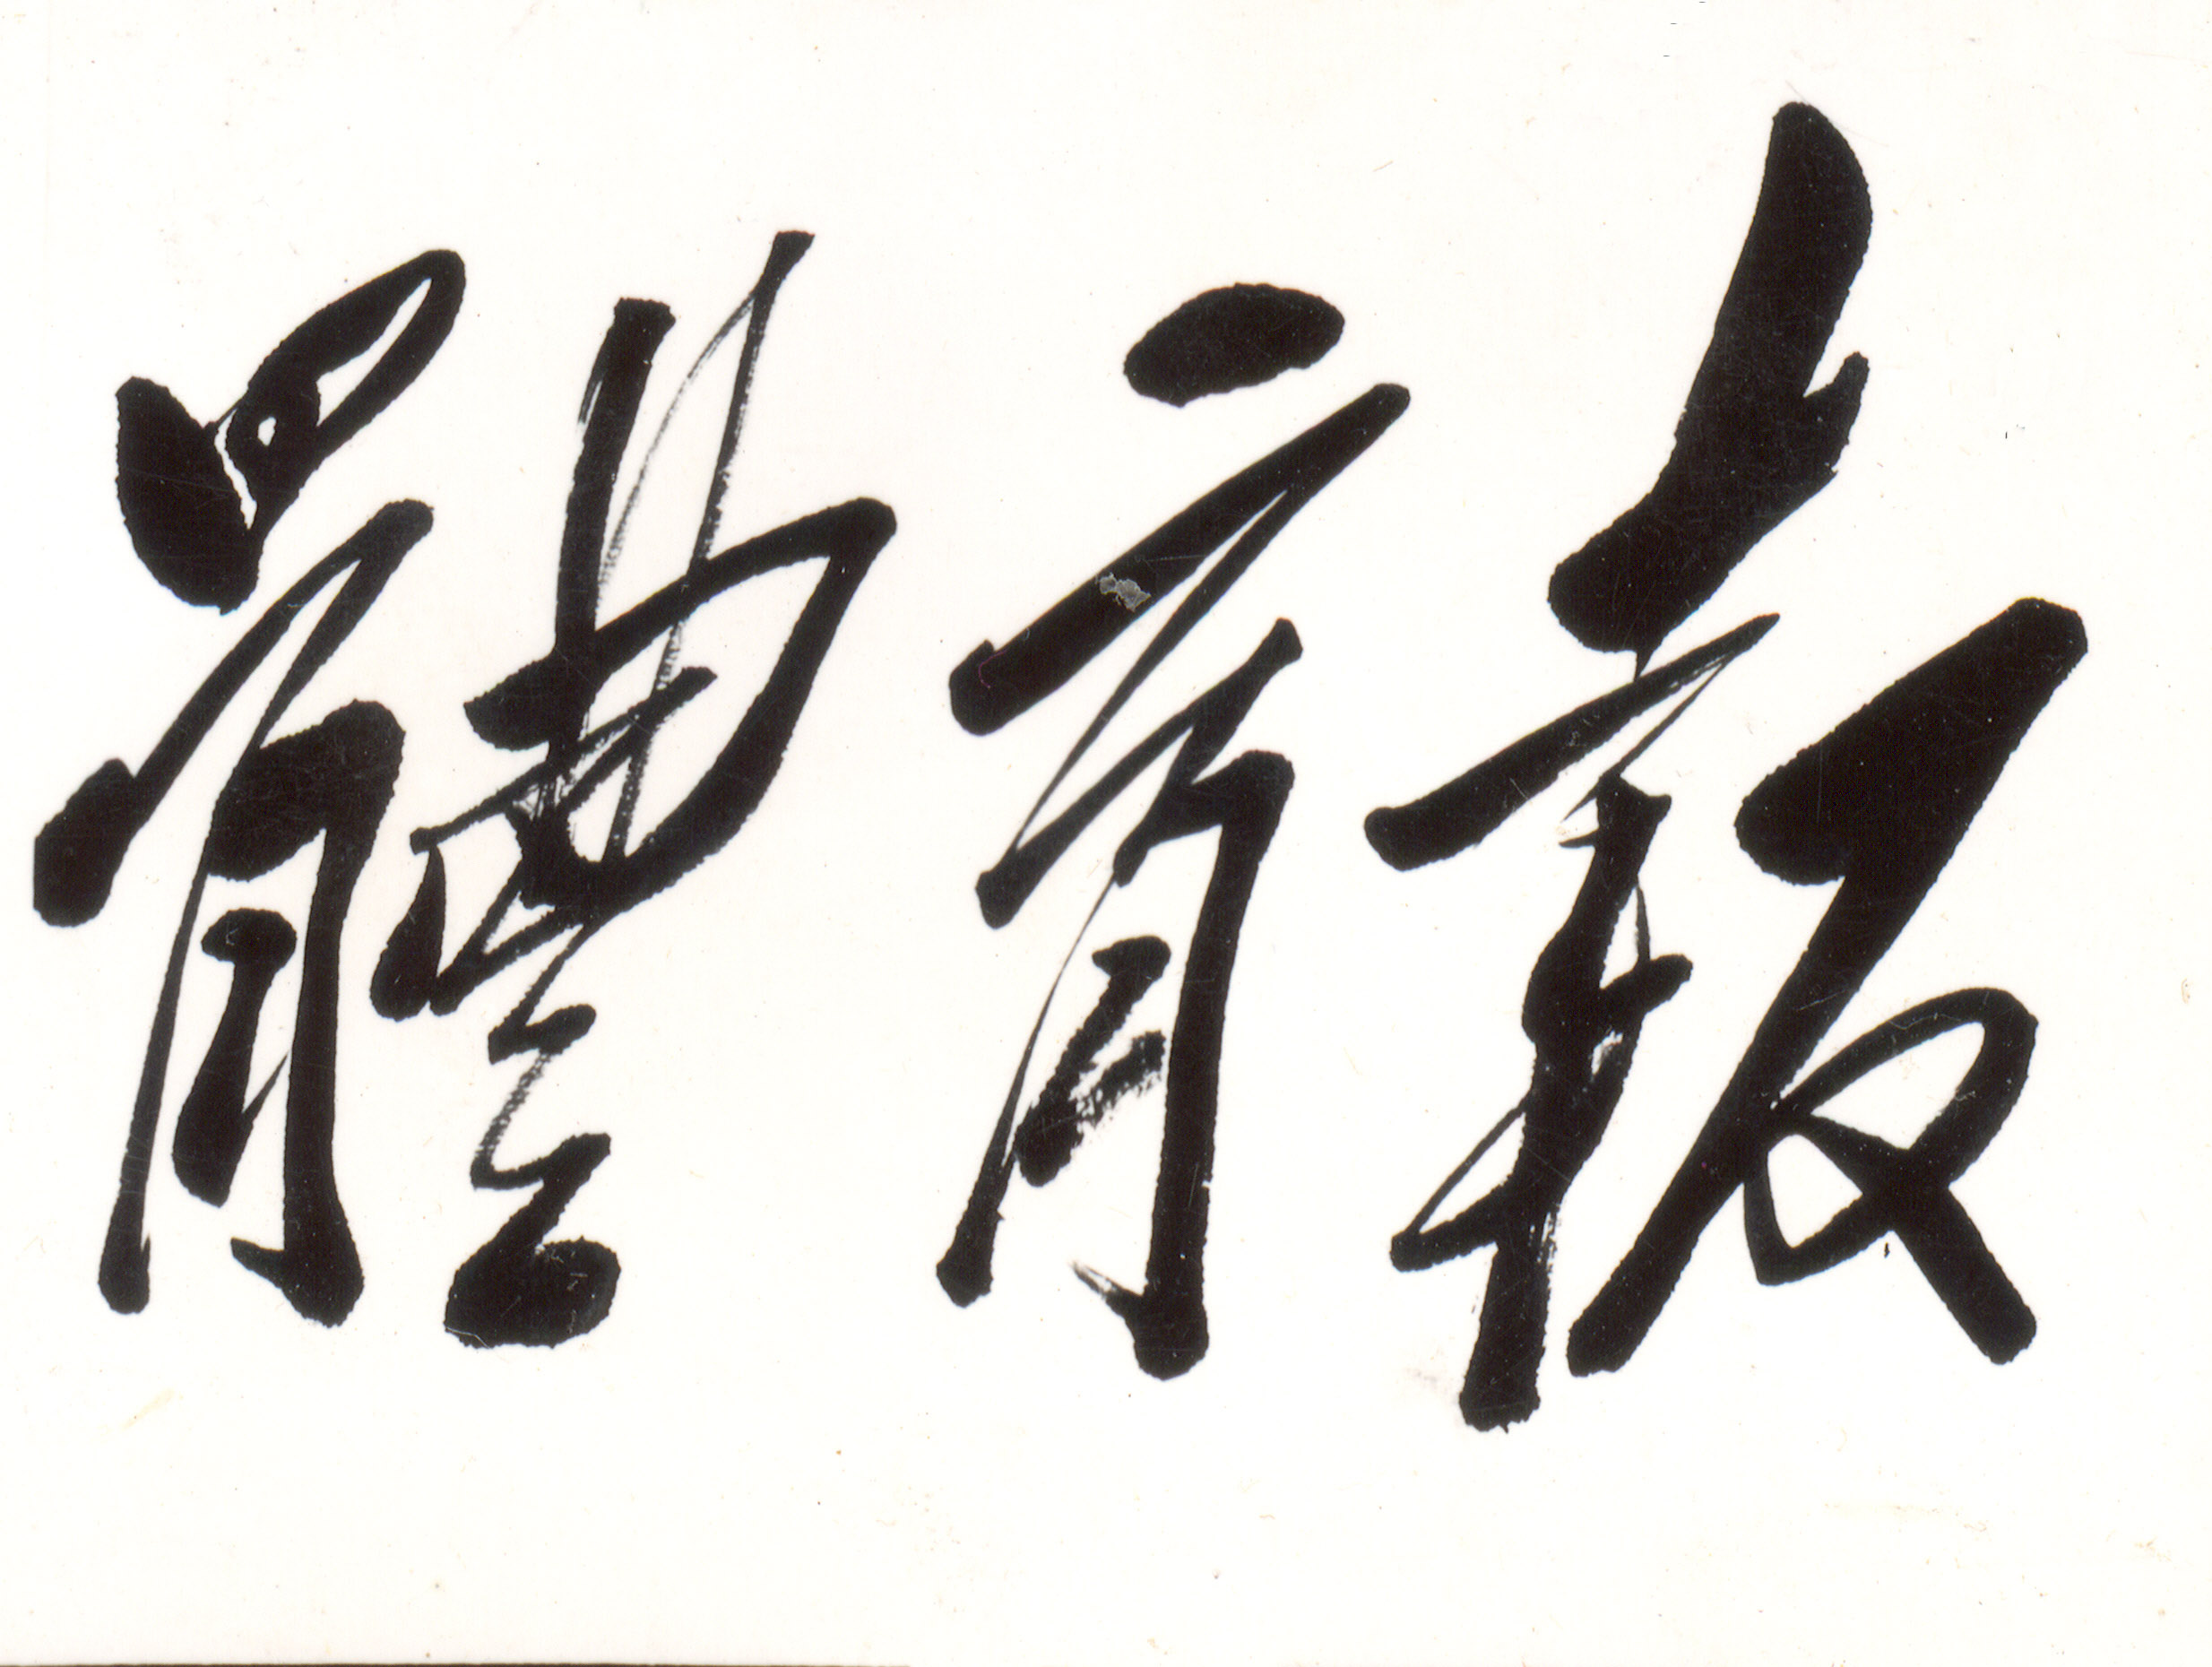 體育報